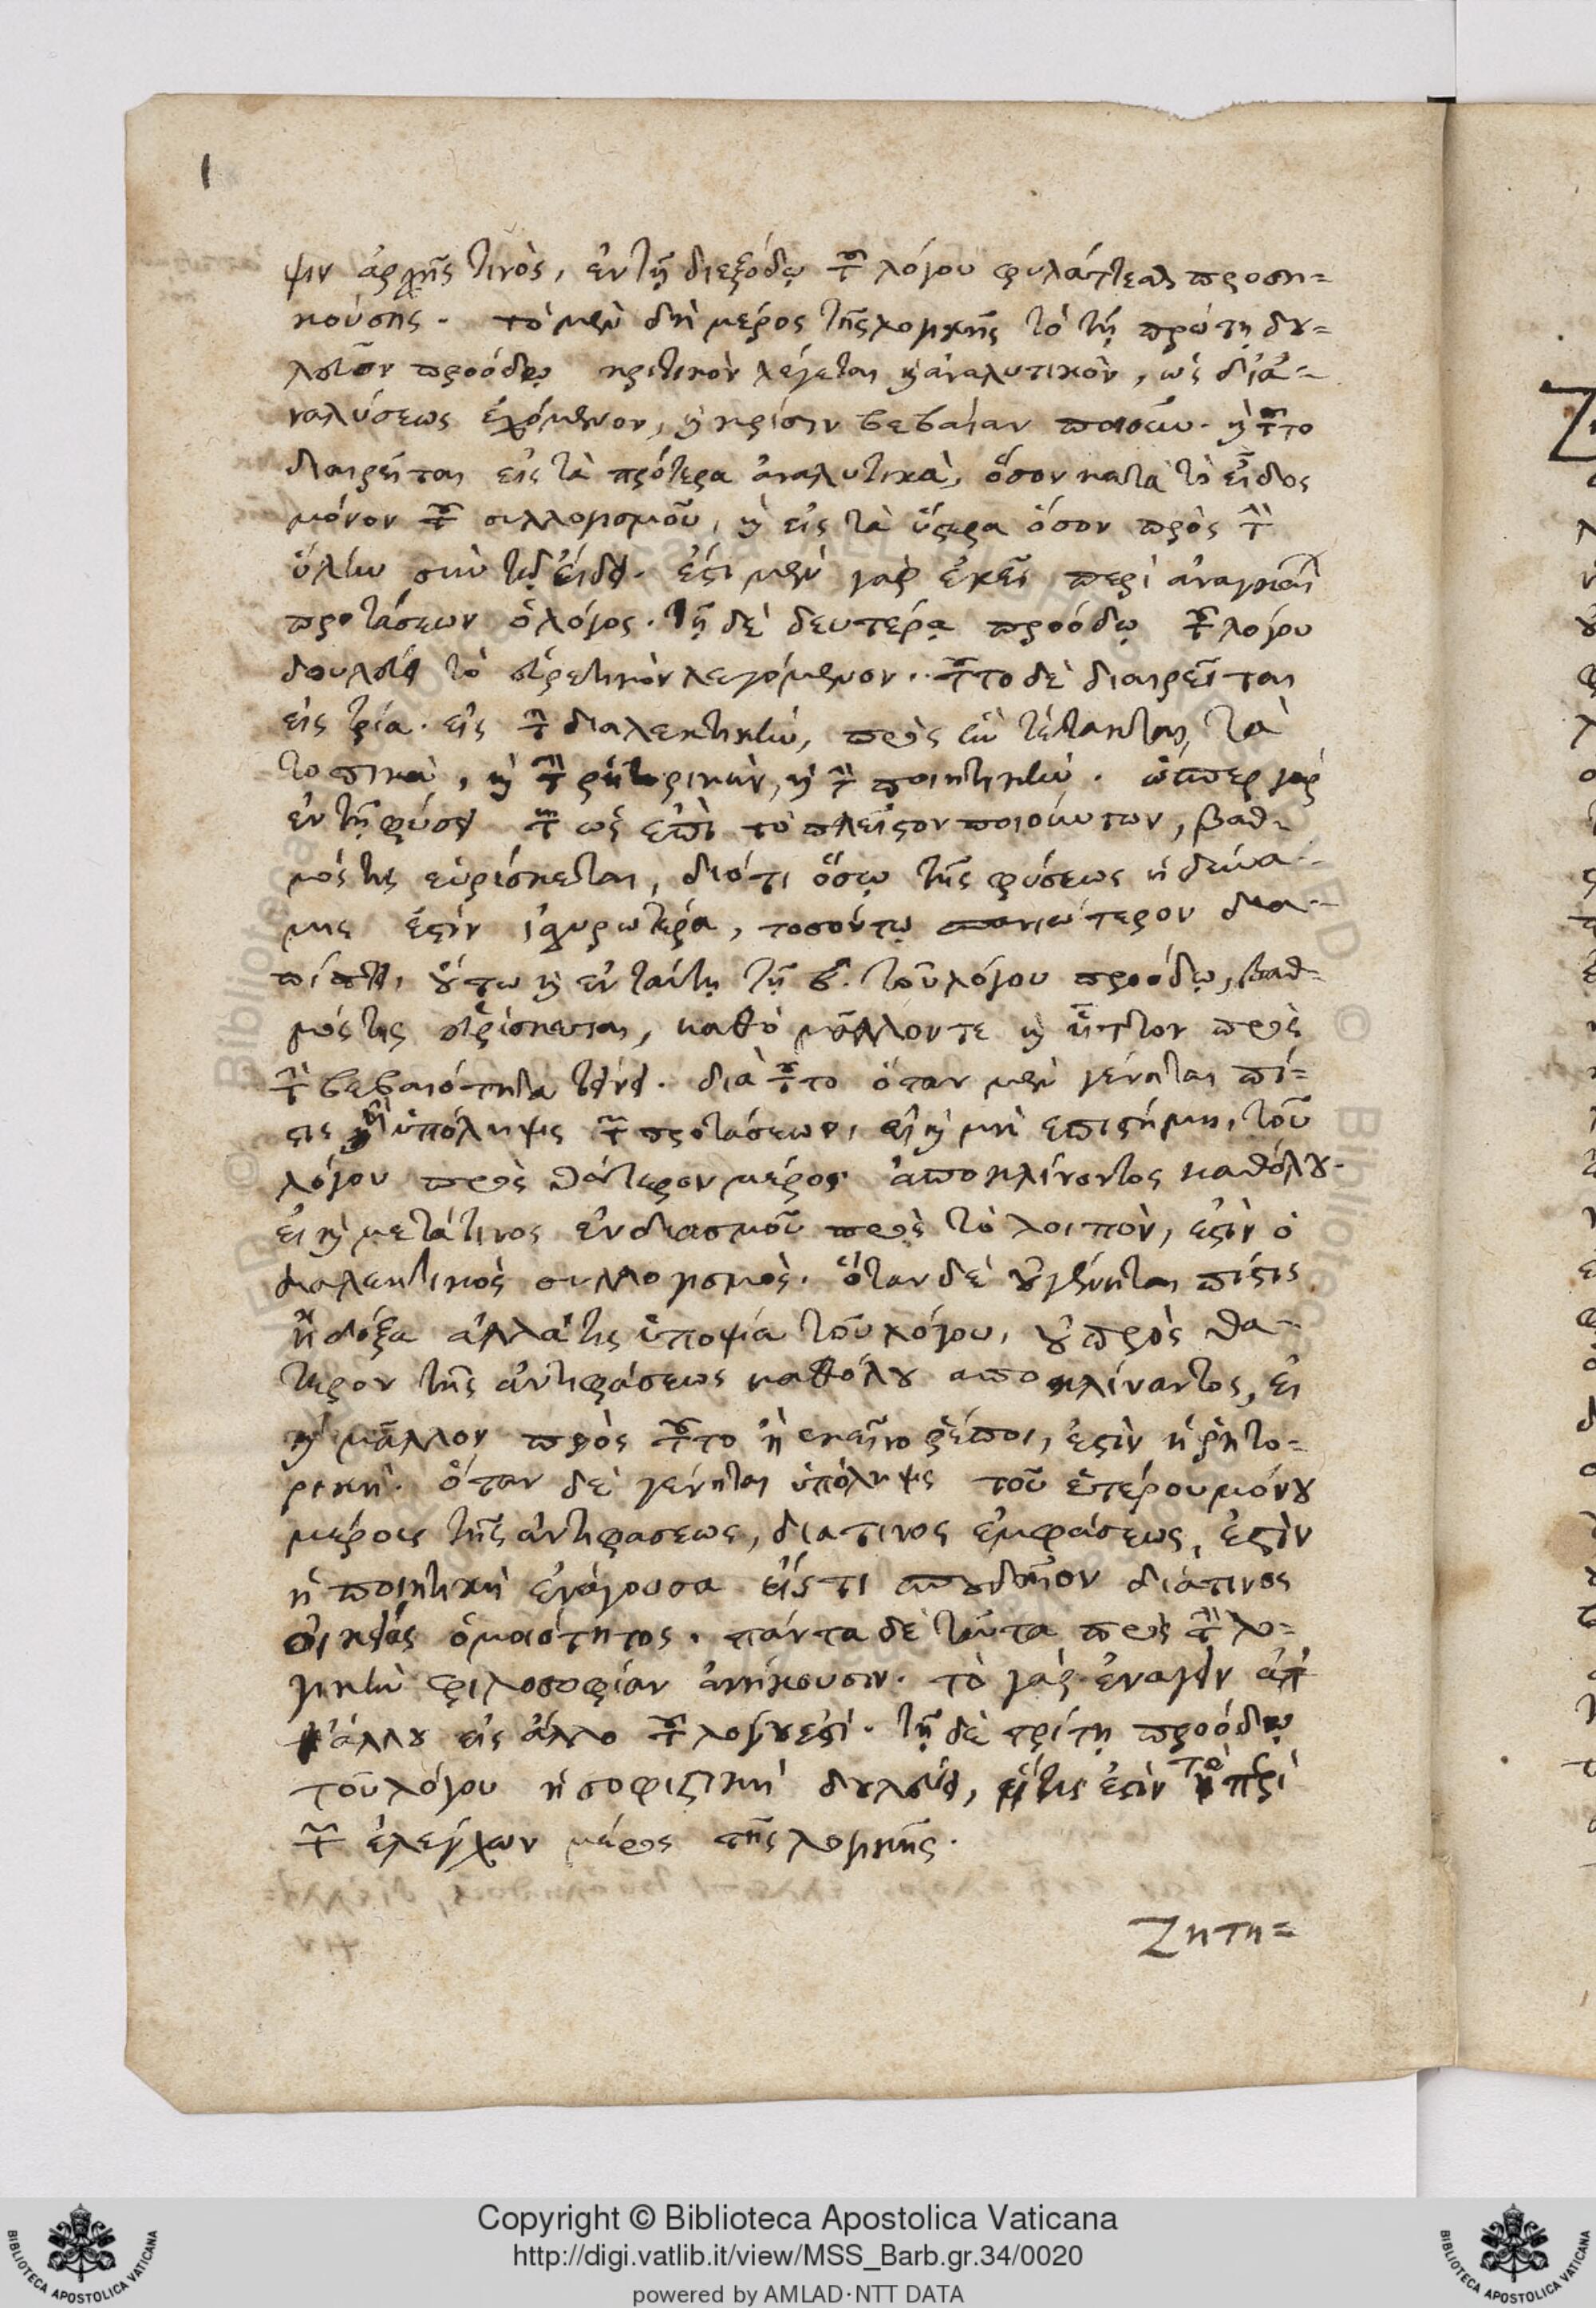 1
ψιν ἀρχῆς τινὸς, ἐν τῇ διεξόδῳ τοῦ λόγου φυλάττεσθαι προση=
κούσης. τὸ μὲν δὴ μέρος τῆς λογικῆς τὸ τῇ πρώτῃ δου=
λεῦον προόδῳ κριτικὸν λέγεται καὶ ἀναλυτικὸν, ὡς δι᾽ ἀ=
ναλύσεως ἐχόμενον, καὶ κρίσιν βεβαίαν ποιοῦν. καὶ τοῦτο
διαιρεῖται εἰς τὰ πρότερα ἀναλυτικὰ, ὅσον κατὰ τὸ εἶδος
μόνον τοῦ συλλογισμοῦ, καὶ εἰς τὰ ὕστερα ὅσον πρὸς τὴν
ὕλην σὺν τῷ εἴδει. ἔστι μὲν γὰρ ἐκεῖ περὶ ἀναγκαίων
προτάσεων ὁ λόγος. τῇ δὲ δευτέρᾳ προόδῳ τοῦ λόγου
δουλεύει τὸ εὑρετικὸν λεγόμενον. τοῦτο δὲ διαιρεῖται
εἰς τρία. εἰς τὴν διαλεκτικὴν, πρὸς ἣν τέτακται τὰ
τοπικὰ, καὶ τὴν ῥητορικὴν, καὶ τὴν ποιητικήν. ὥσπερ γὰρ
ἐν τῇ φύσει τῶν ὡς ἐπὶ τὸ πλεῖστον ποιούντων, βαθ=
μός τις εὑρίσκεται, διότι ὅσῳ τῆς φύσεως ἡ δύνα=
μις ἐστὶν ἰσχυρωτέρα, τοσούτῳ σπανιώτερον δια=
πίπτει, οὕτω καὶ ἐν ταύτῃ τῇ β. τοῦ λόγου προόδῳ, βαθ=
μός τις εὑρίσκεται, καθὸ μᾶλλόν τε καὶ ἧττον πρὸς
τὴν βεβαιότητα τείνει. διὰ τοῦτο ὅταν μὲν γένηται πί=
στις ἢ ὑπόληψις τῶν προτάσεων, εἰ καὶ μὴ ἐπιστήμη, τοῦ
λόγου πρὸς θάτερον μέρος ἀποκλίνοντος καθόλου.
εἰ καὶ μετά τινος ἐνδιασμοῦ πρὸς τὸ λοιπὸν, ἐστὶν ὁ
διαλεκτικὸς συλλογισμός. ὅταν δὲ οὐ γένηται πίστις
ἢ δόξα ἀλλά τις ὑποψία τοῦ λόγου, οὐ πρὸς θά=
τερον τῆς ἀντιφάσεως καθόλου ἀποκλίναντος, εἰ
καὶ μᾶλλον πρὸς τοῦτο ἢ ἐκεῖνο ῥέποι, ἐστὶν ἡ ῥητο=
ρική. ὅταν δὲ γένηται ὑπόληψις τοῦ ἑτέρου μόνου
μέρους τῆς ἀντιφάσεως, διά τινος ἐμφάσεως, ἐστὶν
ἡ ποιητικὴ ἐνάγουσα εἴς τι σπουδαῖον διά τινος
οἰκείας ὁμοιότητος. πάντα δὲ ταῦτα πρὸς τὴν λο=
γικὴν φιλοσοφίαν ἀνήκουσιν. τὸ γὰρ ἐνάγειν ἀπ᾽
ἄλλου εἰς ἄλλο τοῦ λόγου ἐστί. τῇ δὲ τρίτῃ προόδῳ
τοῦ λόγου ἡ σοφιστικὴ δουλεύει, ἥτις ἐστὶν τὸ περὶ
τῶν ἐλέγχων μέρος τῆς λογικῆς.
Ζητη=
Copyright © Biblioteca Apostolica Vaticana
http://digi.vatlib.it/view/MSS_Barb.gr.34/0020
powered by AMLAD·NTT DATA